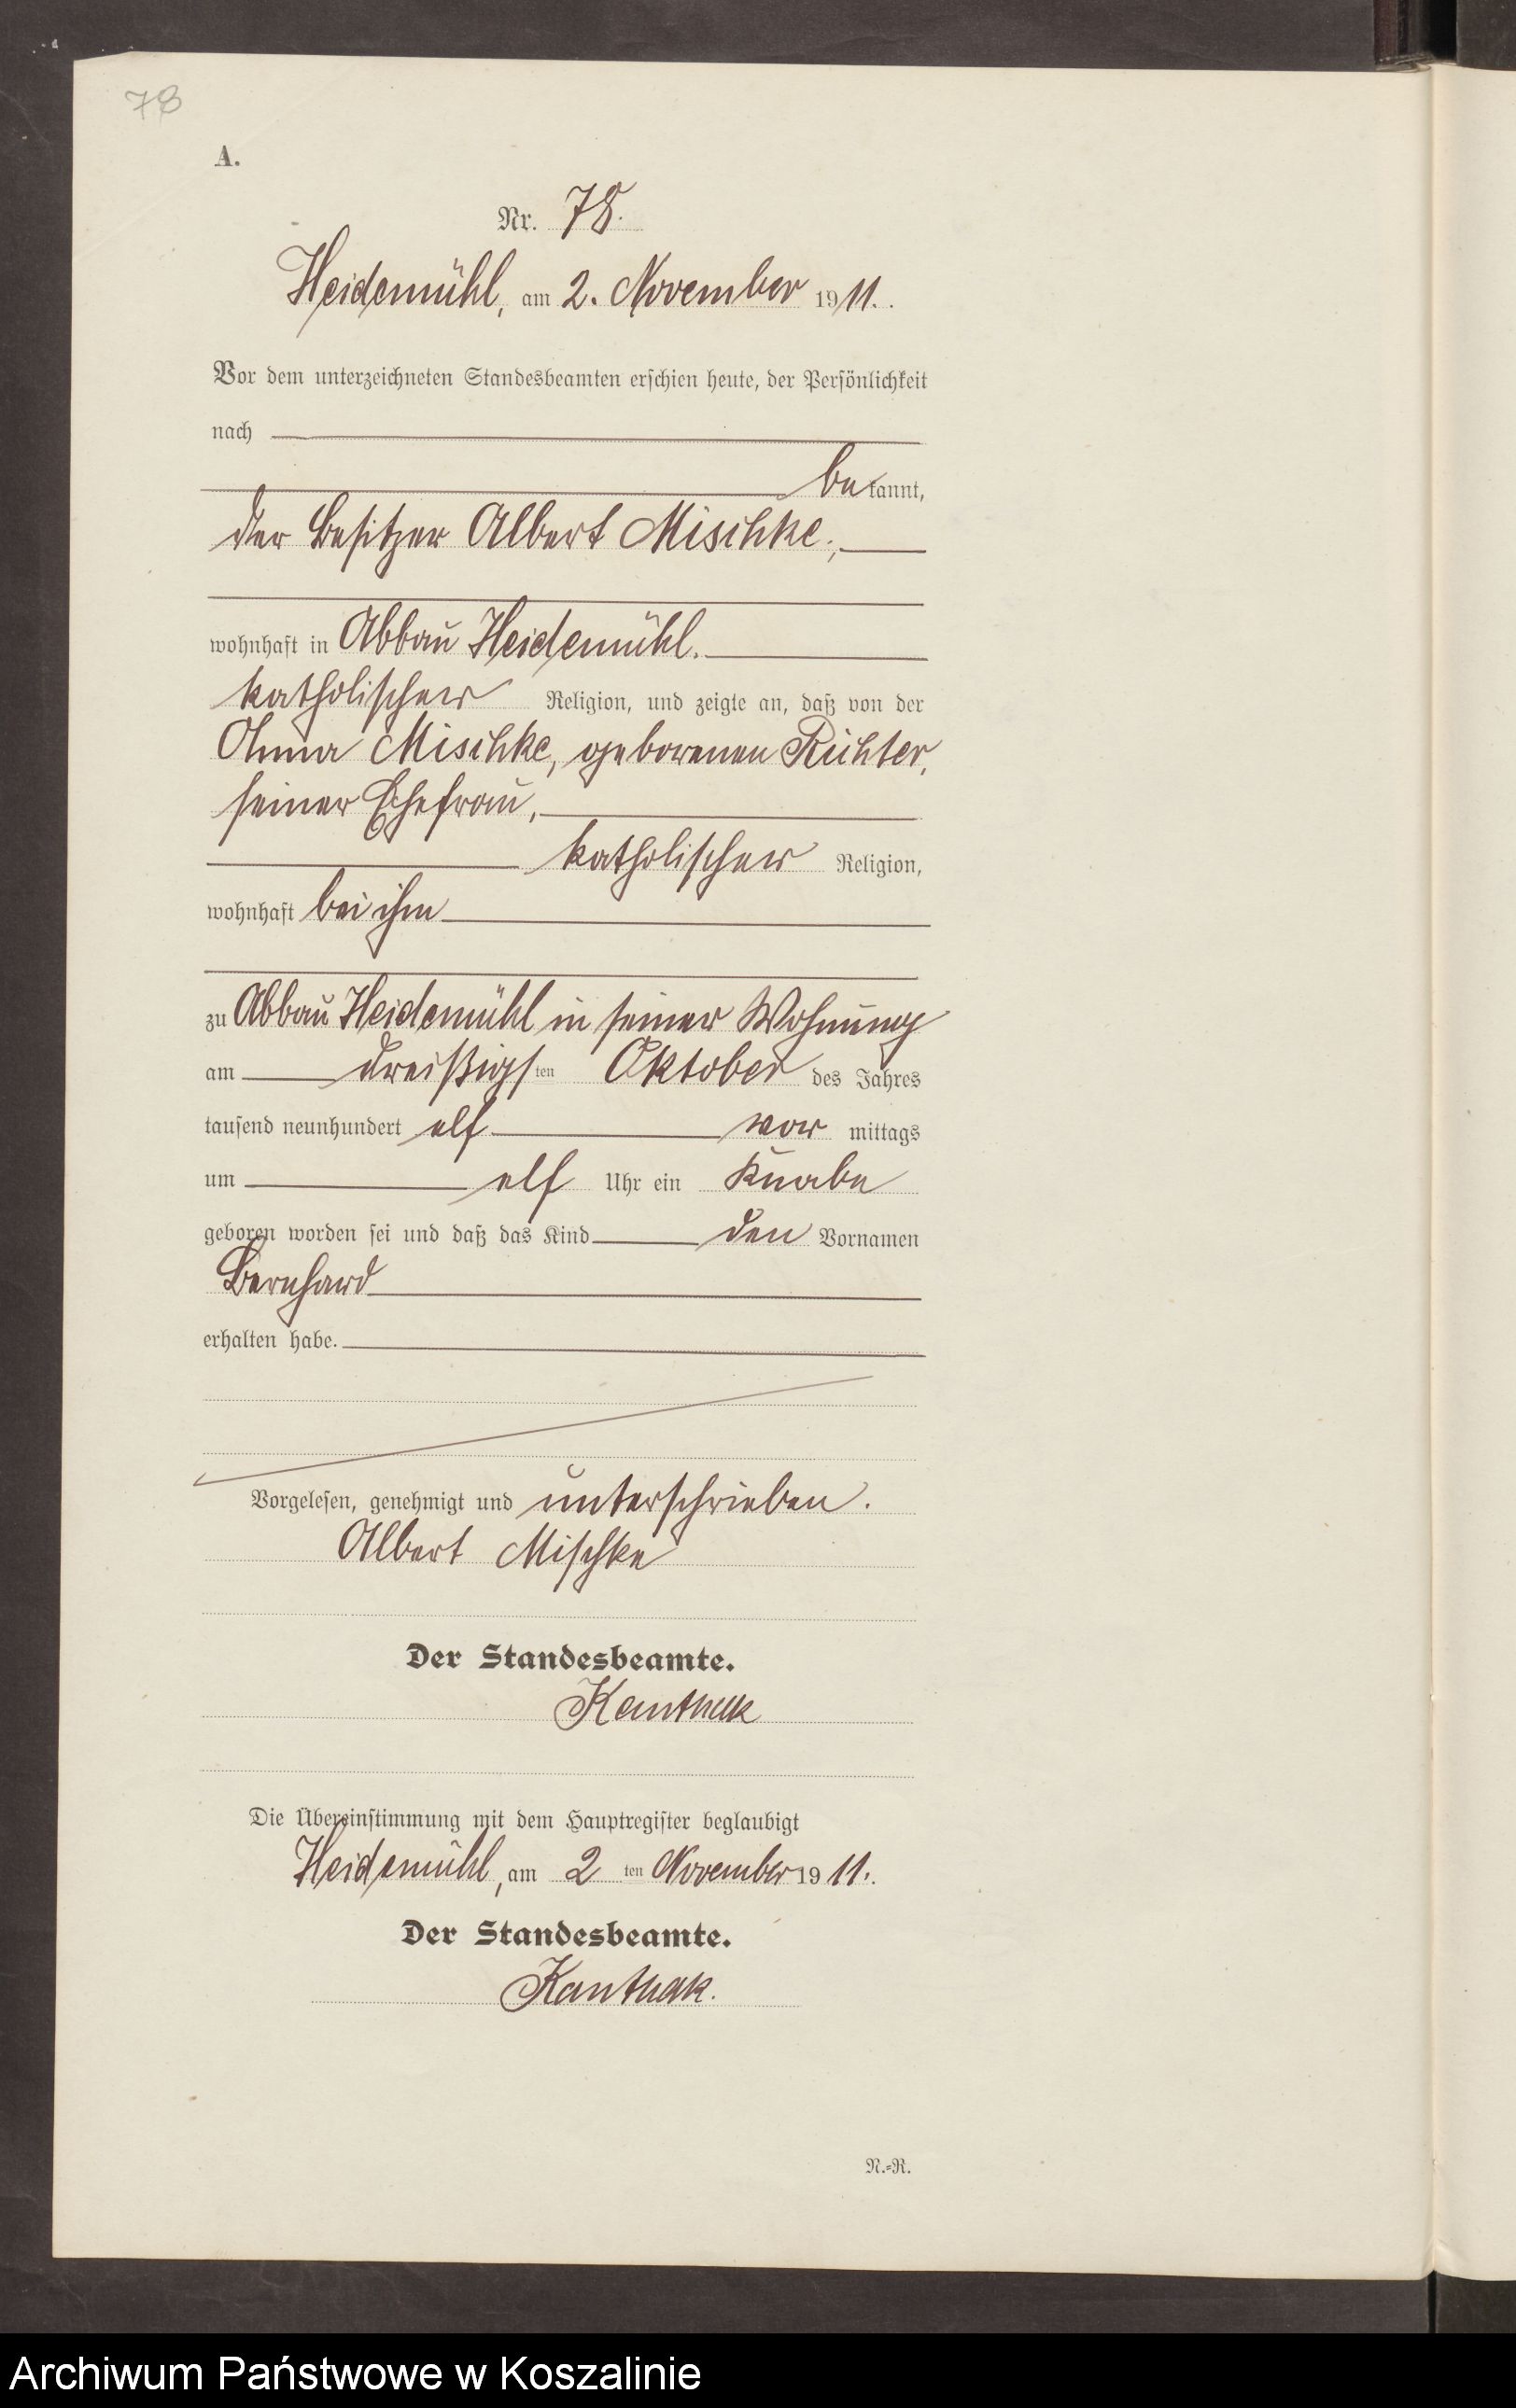 78
A.
Nr. 78.
Heidemühl, am 2. November 1911.
Vor dem unterzeichneten Standesbeamten erschien heute, der Persönlichkeit
nach
bekannt,
der Besitzer Albert Mischke,
wohnhaft in Abbau Heidemühl.
katholischer Religion, und zeigte an, daß von der
Anna Mischke, geborenen Richter,
seiner Ehefrau,
katholischer Religion,
wohnhaft bei ihm
zu Abbau Heidemühl in seiner Wohnung
am dreißigsten Oktober des Jahres
tausend neunhundert elf vor mittags
um elf Uhr ein Knabe
geboren worden sei und daß das Kind den Vornamen
Bernhard
erhalten habe.
Vorgelesen, genehmigt und unterschrieben.
Albert Mischke
Der Standesbeamte.
Kanthak
Die Übereinstimmung mit dem Hauptregister beglaubigt
Heidemühl, am 2 ten November 1911.
Der Standesbeamte.
Kanthak.
N.=R.
Archiwum Państwowe w Koszalinie